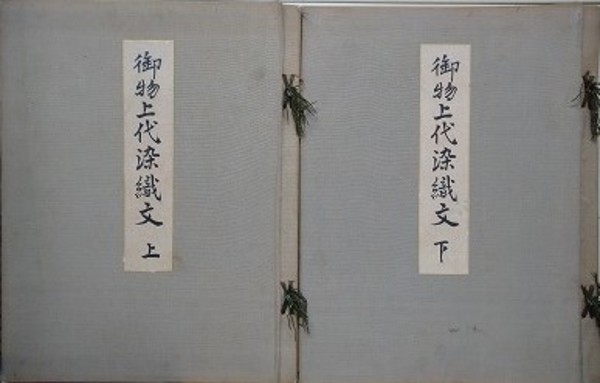 御物上代染織文 上
御物上代染織文 下